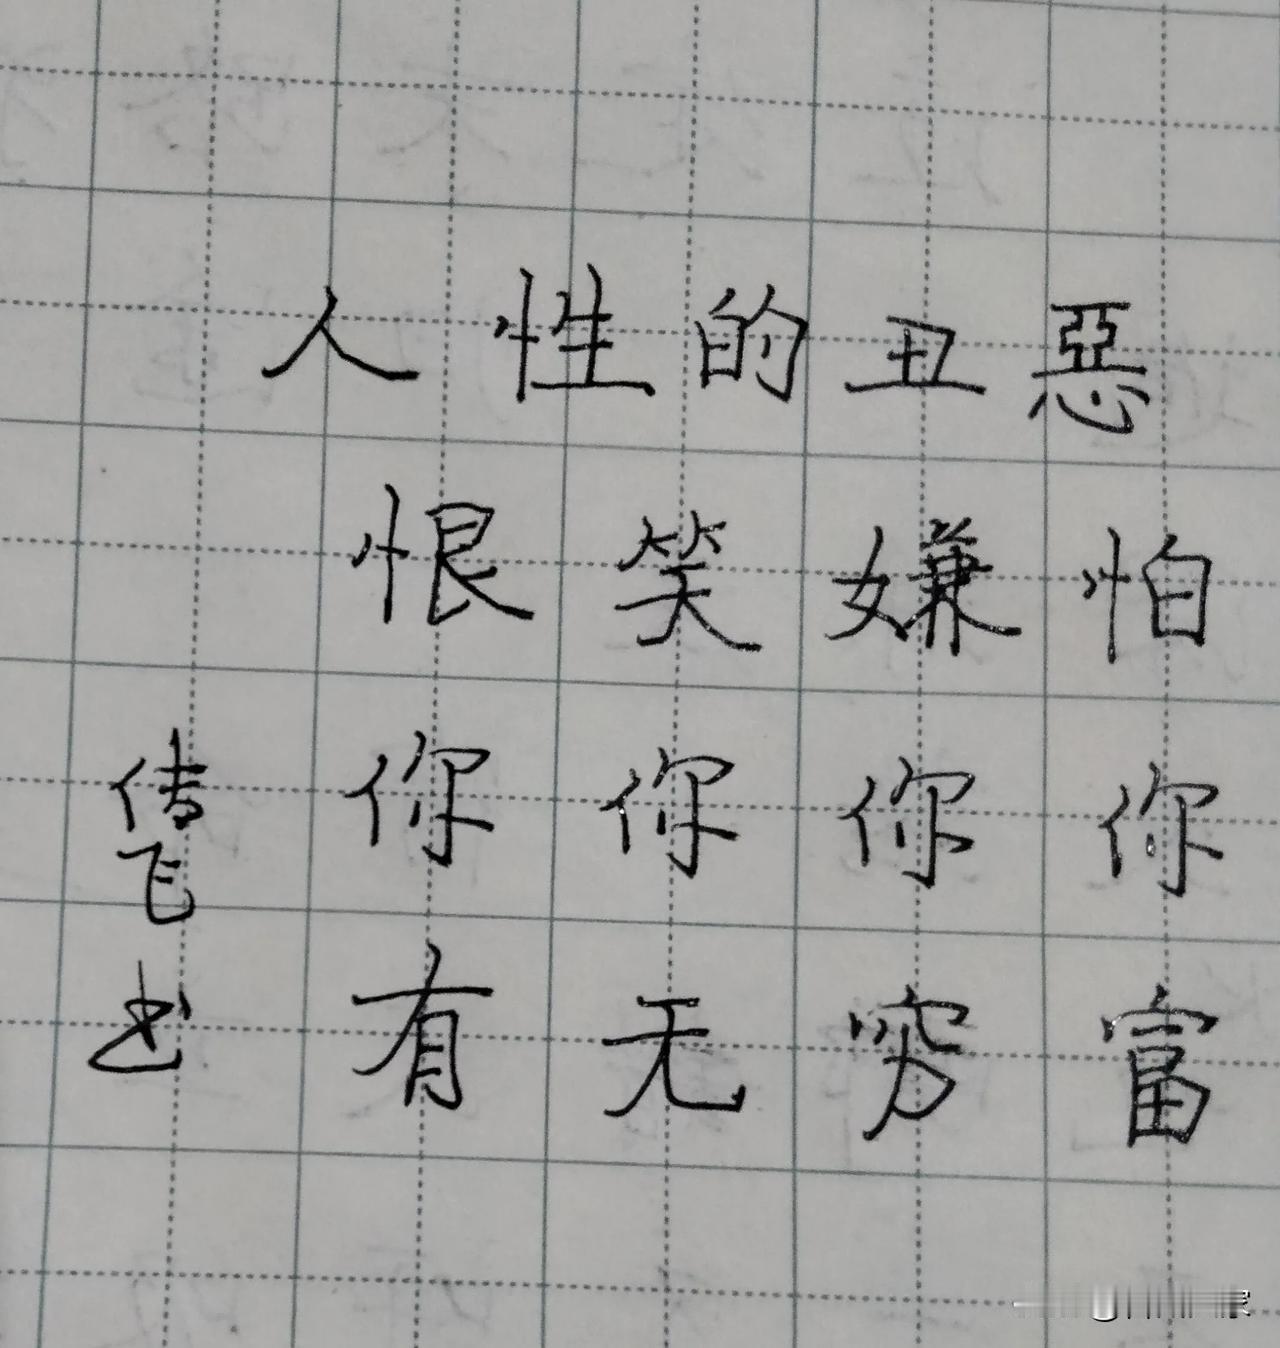 人性的丑惡
怕你富
嫌你穷
笑你无
恨你有
飞书